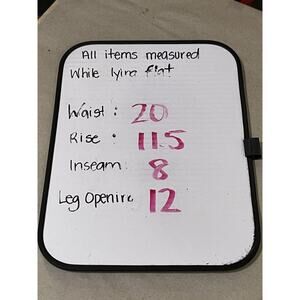 All items measured
While lying flat
Waist: 20
Rise: 11.5
Inseam: 8
Leg Opening 12